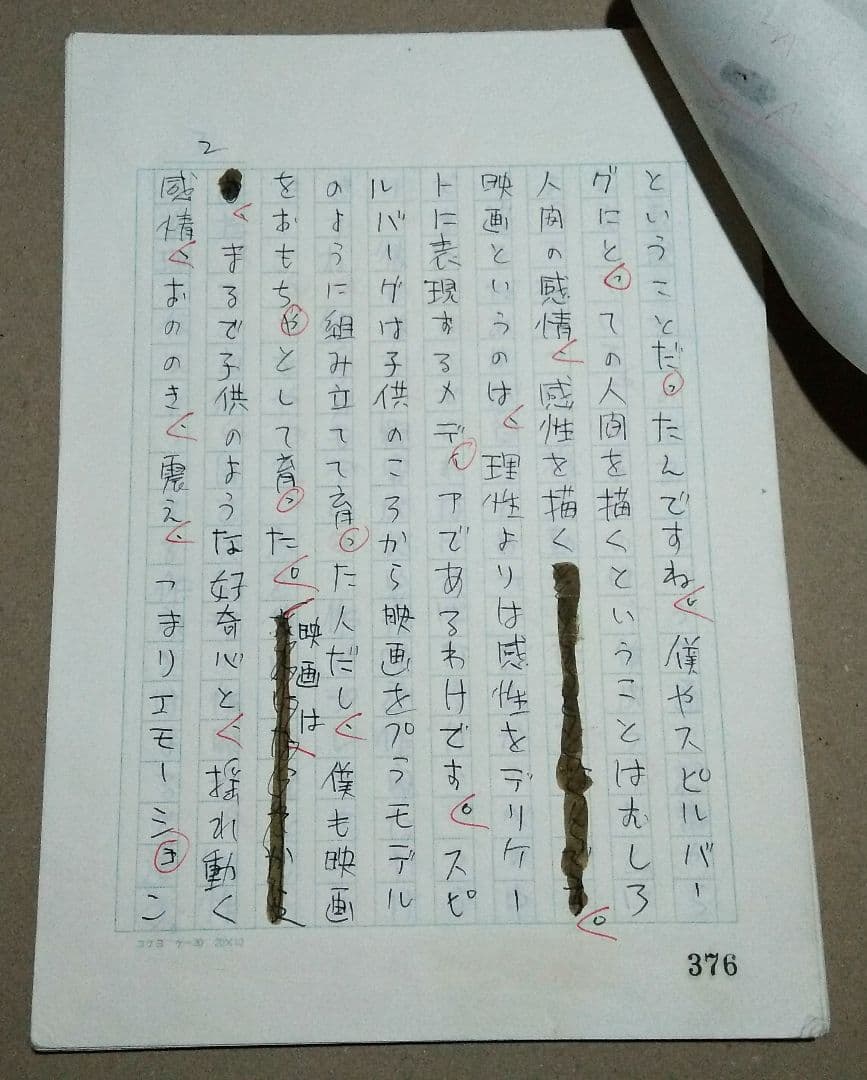 2
ということだったんですね。僕やスピルバー
グにとっての人間を描くということはむしろ
人間の感情、感性を描く。
映画というのは、理性よりは感性をデリケー
トに表現するメディアであるわけです。スピ
ルバーグは子供のころから映画をプラモデル
のように組み立てて育った人だし、僕も映画
をおもちゃとして育った。
映画は、
、まるで子供のような好奇心と、揺れ動く
感情、おののき、震え、つまりエモーション
コクヨ ケー30 20×10
376